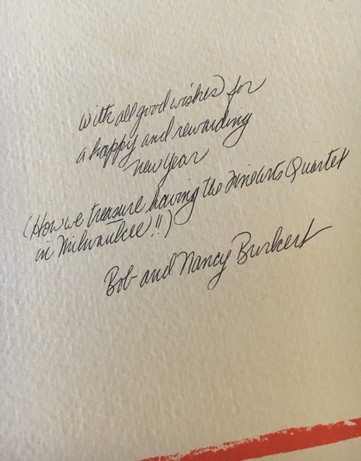 with all good wishes for
a happy and rewarding
new year
(How we treasure having the Finearts Quartet
in Milwaukee!!)
Bob and Nancy Burkert